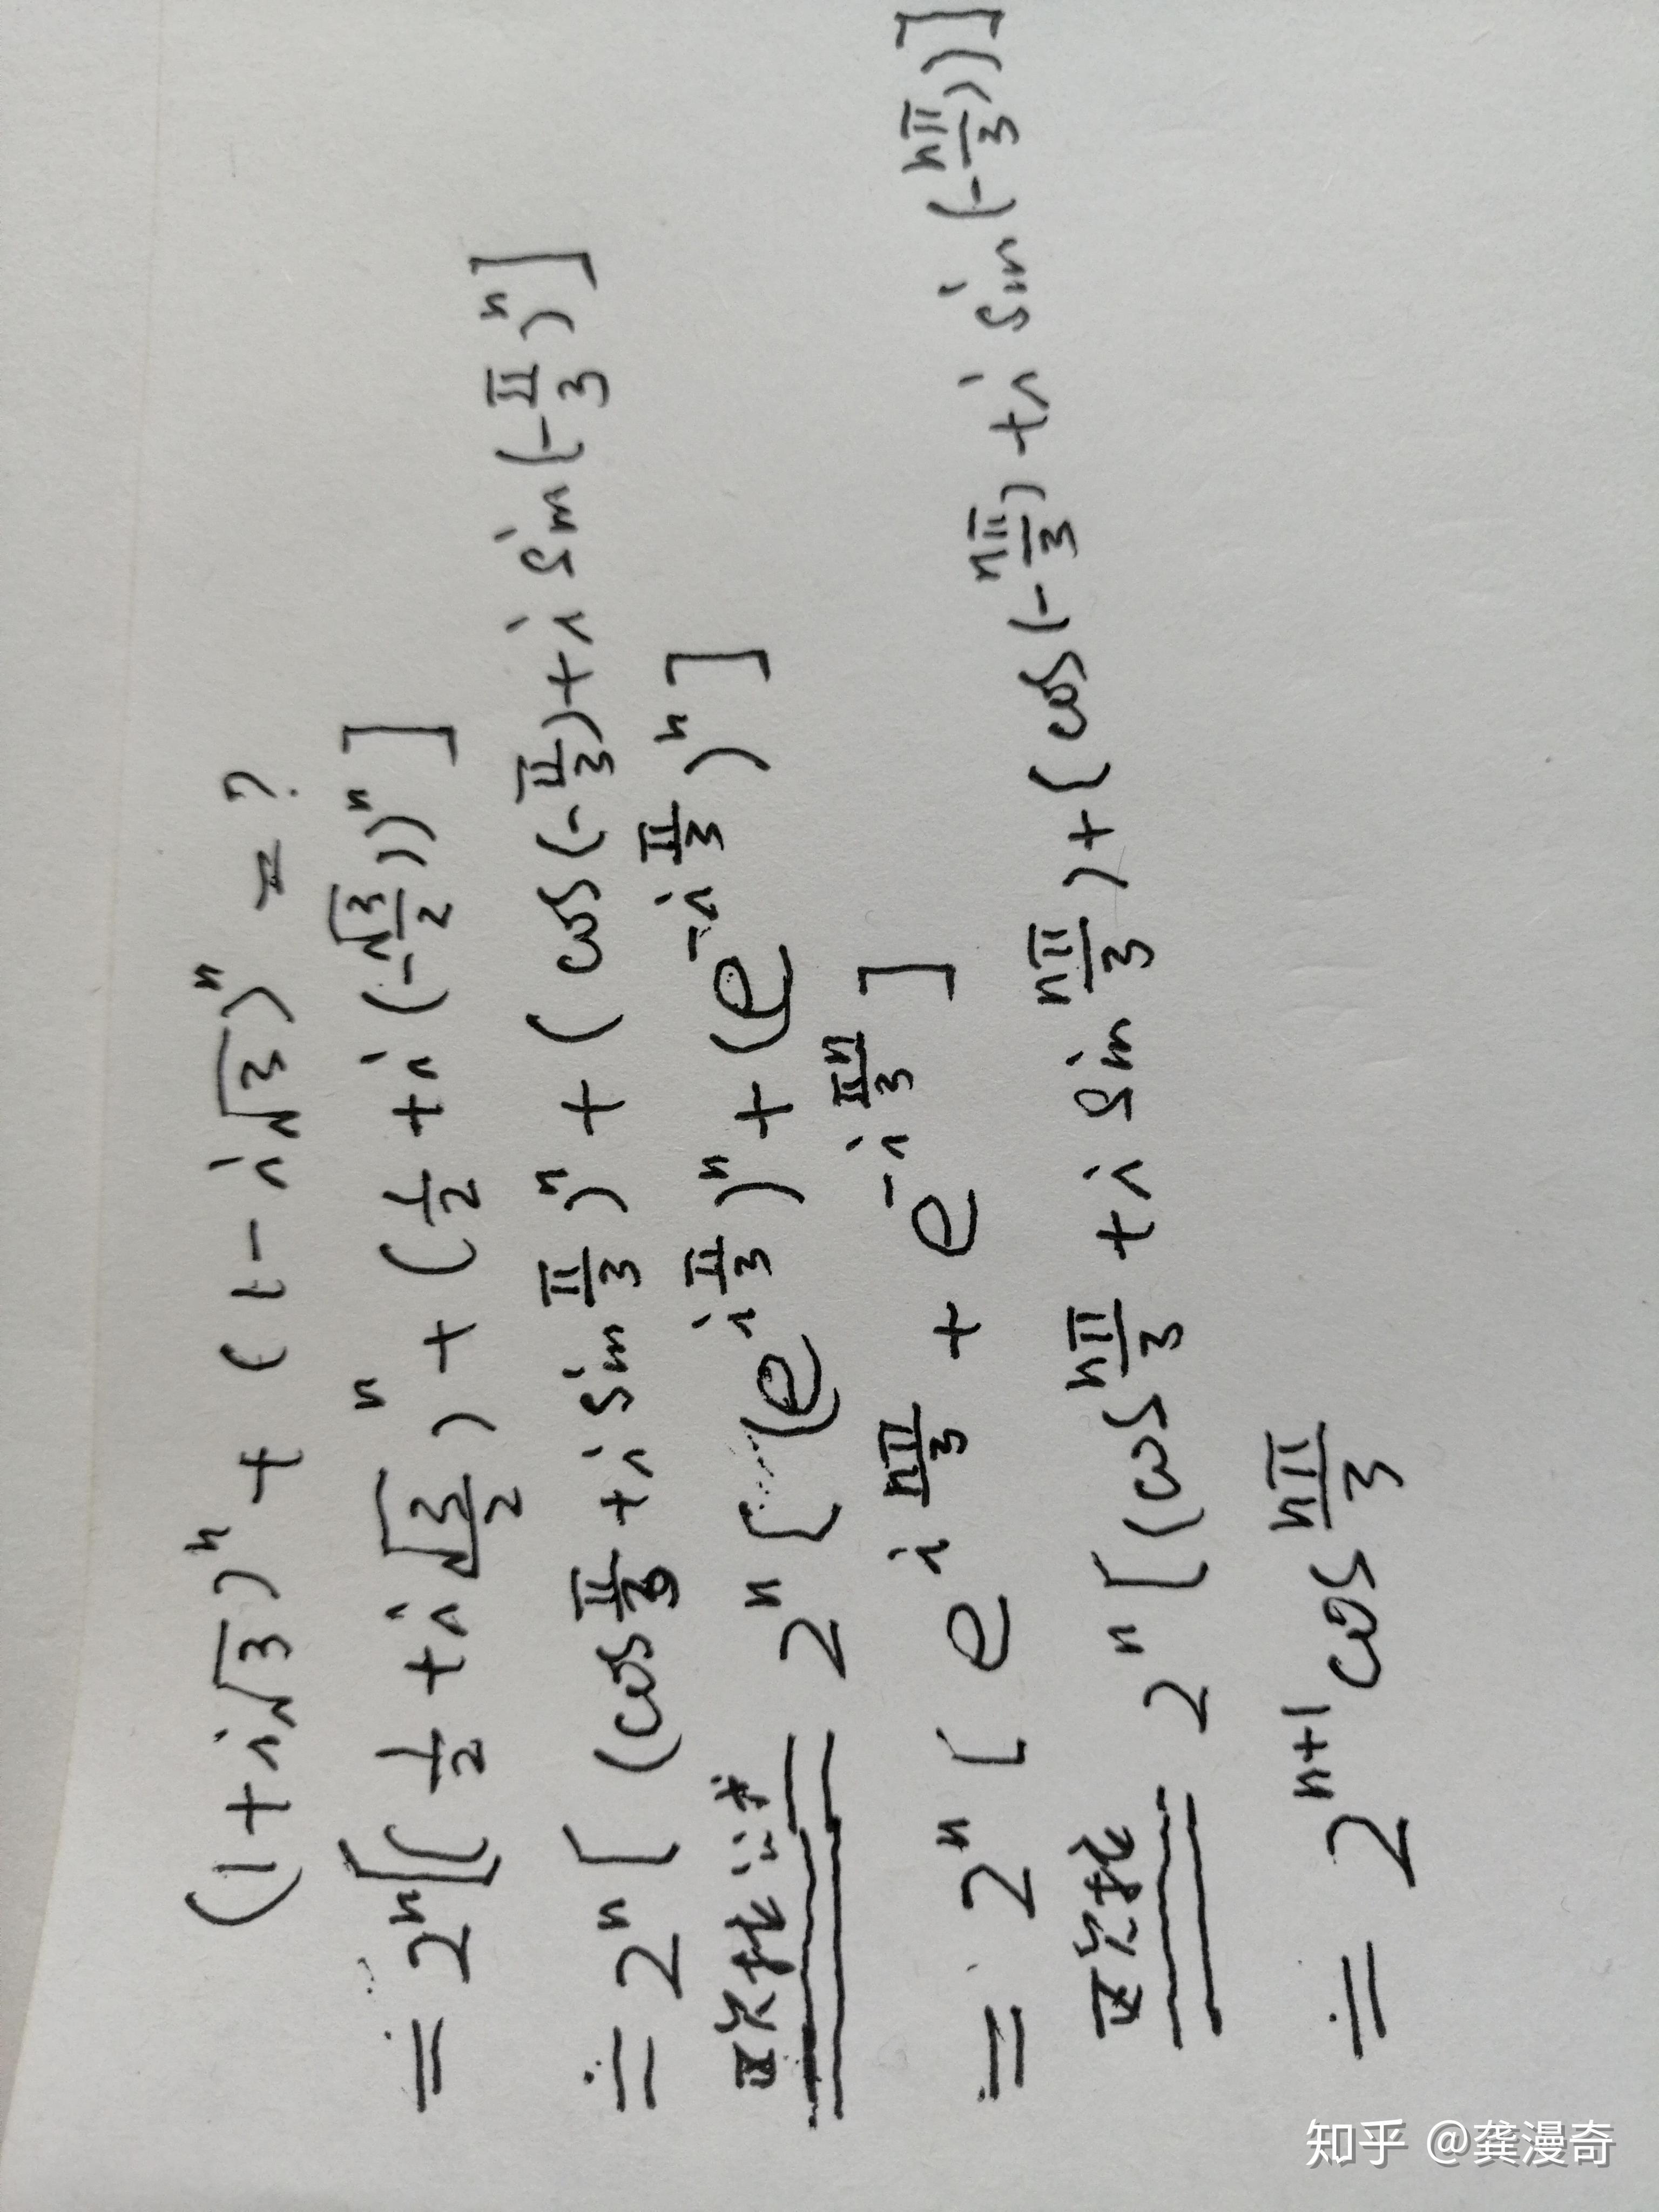 (1+i√3)ⁿ + (1-i√3)ⁿ = ?
= 2ⁿ[(1/2 + i√3/2)ⁿ + (1/2 + i(-√3/2))ⁿ]
= 2ⁿ[(cos π/3 + i sin π/3)ⁿ + (cos(-π/3) + i sin(-π/3)ⁿ]
= 2ⁿ[(e^{iπ/3})ⁿ + (e^{-iπ/3})ⁿ]
= 2ⁿ[e^{i nπ/3} + e^{-i πn/3}]
= 2ⁿ[(cos nπ/3 + i sin nπ/3) + (cos(-nπ/3) + i sin(-nπ/3))]
= 2ⁿ⁺¹ cos nπ/3
知乎 @龚漫奇